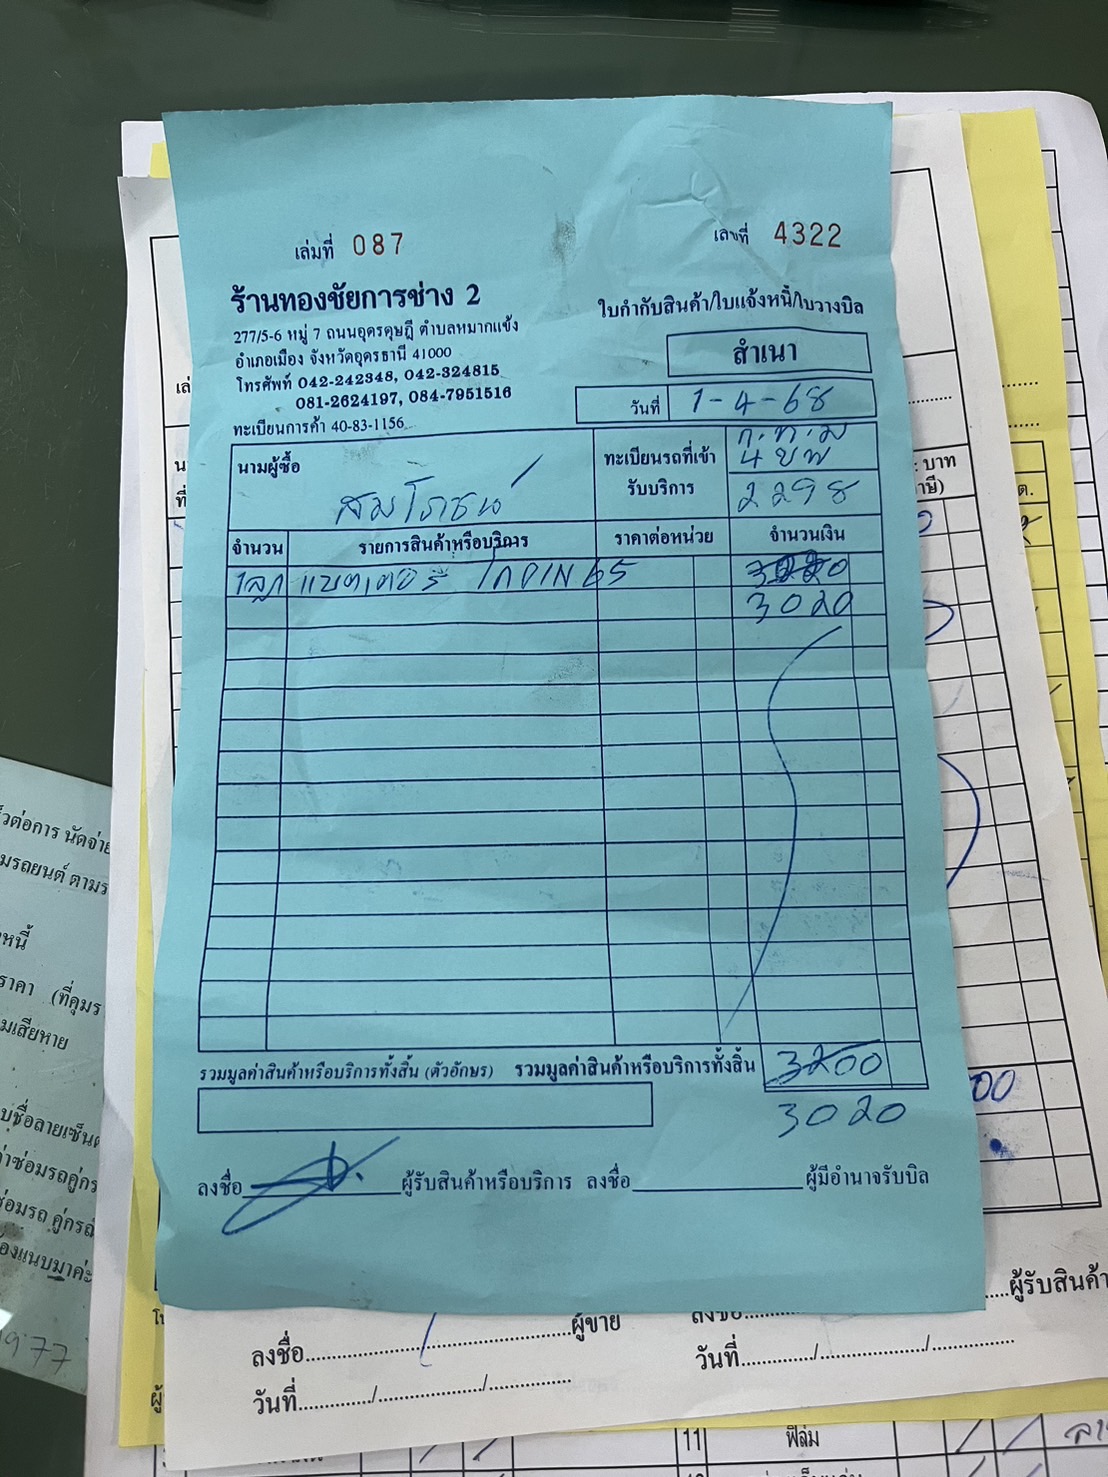 เล่มที่ 087
เลขที่ 4322
ร้านทองชัยการช่าง 2
277/5-6 หมู่ 7 ถนนอุดรดุษฎี ตำบลหมากแข้ง
อำเภอเมือง จังหวัดอุดรธานี 41000
โทรศัพท์ 042-242348, 042-324815
081-2624197, 084-7951516
ทะเบียนการค้า 40-83-1156
ใบกำกับสินค้า/ใบแจ้งหนี้/ใบวางบิล
สำเนา
วันที่ 1-4-68
นามผู้ซื้อ
สมโภชน์
ทะเบียนรถที่เข้า
รับบริการ
ก.ท.ม
2298
จำนวน รายการสินค้าหรือบริการ ราคาต่อหน่วย จำนวนเงิน
1ลูก แบตเตอรี่ DIN 65
3020
รวมมูลค่าสินค้าหรือบริการทั้งสิ้น (ตัวอักษร) รวมมูลค่าสินค้าหรือบริการทั้งสิ้น 3200
3020
ลงชื่อ ผู้รับสินค้าหรือบริการ ลงชื่อ ผู้มีอำนาจรับบิล
บาท
นัดจ่าย
มรถยนต์ ตามร
หนี้
ราคา (ที่คุมร
มเสียหาย
ค่าซ่อมรถคู่กร
ซ่อมรถ คู่กรณ์
องแนบมาค่ะ
977
00
ลงชื่อ ผู้ขาย
วันที่ / /
ลงชื่อ ผู้รับสินค้า
วันที่ / /
11 ฟิล์ม